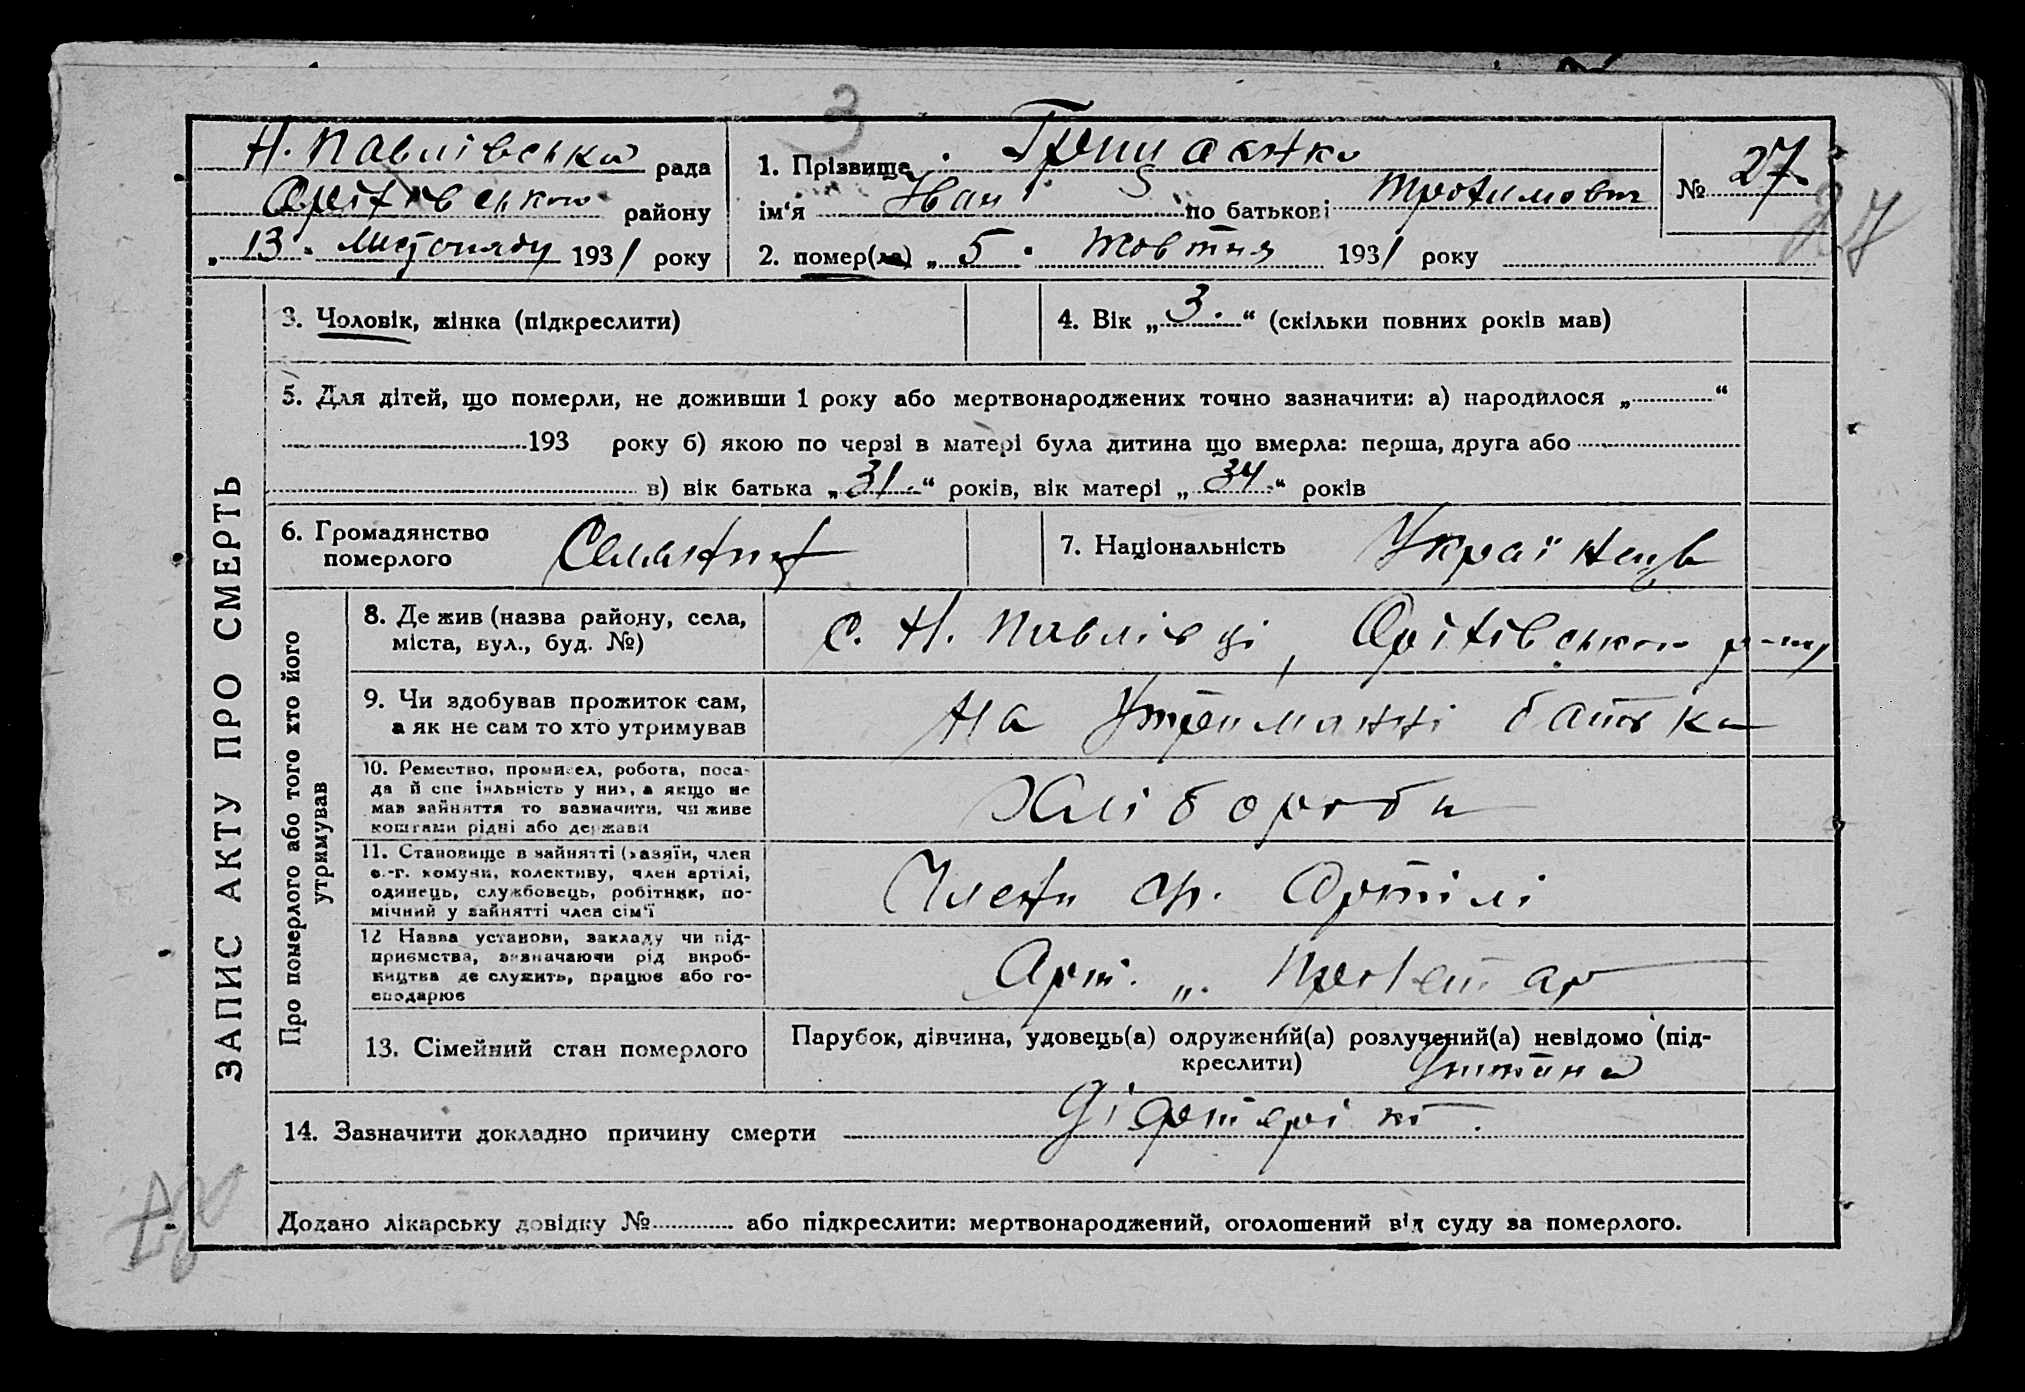 3
Н. Павлівська рада
Оріхівського району
„ 13 " листопаду 1931 року
1. Прізвище
ім'я Іван по батькові Трохимович
№ 27
27
2. помер(ла) „ 5 " жовтня 1931 року
ЗАПИС АКТУ ПРО СМЕРТЬ
3. Чоловік, жінка (підкреслити)
4. Вік „ 3. “ (скільки повних років мав)
5. Для дітей, що померли, не доживши 1 року або мертвонароджених точно зазначити: а) народилося „ “
193 року б) якою по черзі в матері була дитина що вмерла: перша, друга або
в) вік батька „ 31. “ років, вік матері „ 34 “ років
6. Громадянство
померлого
Селянин
7. Національність Українець
Про померлого або того хто його
утримував
8. Де жив (назва району, села,
міста, вул., буд. №)
с. Н. Павлівці, Оріхівського р-ну
9. Чи здобував прожиток сам,
а як не сам то хто утримував
на утриманні батька
10. Ремество, промисел, робота, поса-
да й спеціяльність у них, а якщо не
мав зайняття то зазначити, чи живе
коштами рідні або держави
Хлібороби
11. Становище в зайнятті (хазяїн, член
с.-г. комуни, колективу, член артілі,
одинець, службовець, робітник, по-
мічний у зайнятті член сім'ї
Член Артілі
12 Назва установи, закладу чи під-
приємства, зазначаючи рід вироб-
ництва де служить, працює або го-
сподарює
Арт. „
13. Сімейний стан померлого
Парубок, дівчина, удовець(а) одружений(а) розлучений(а) невідомо (під-
креслити) Дитина
14. Зазначити докладно причину смерти
Додано лікарську довідку № або підкреслити: мертвонароджений, оголошений від суду за померлого.